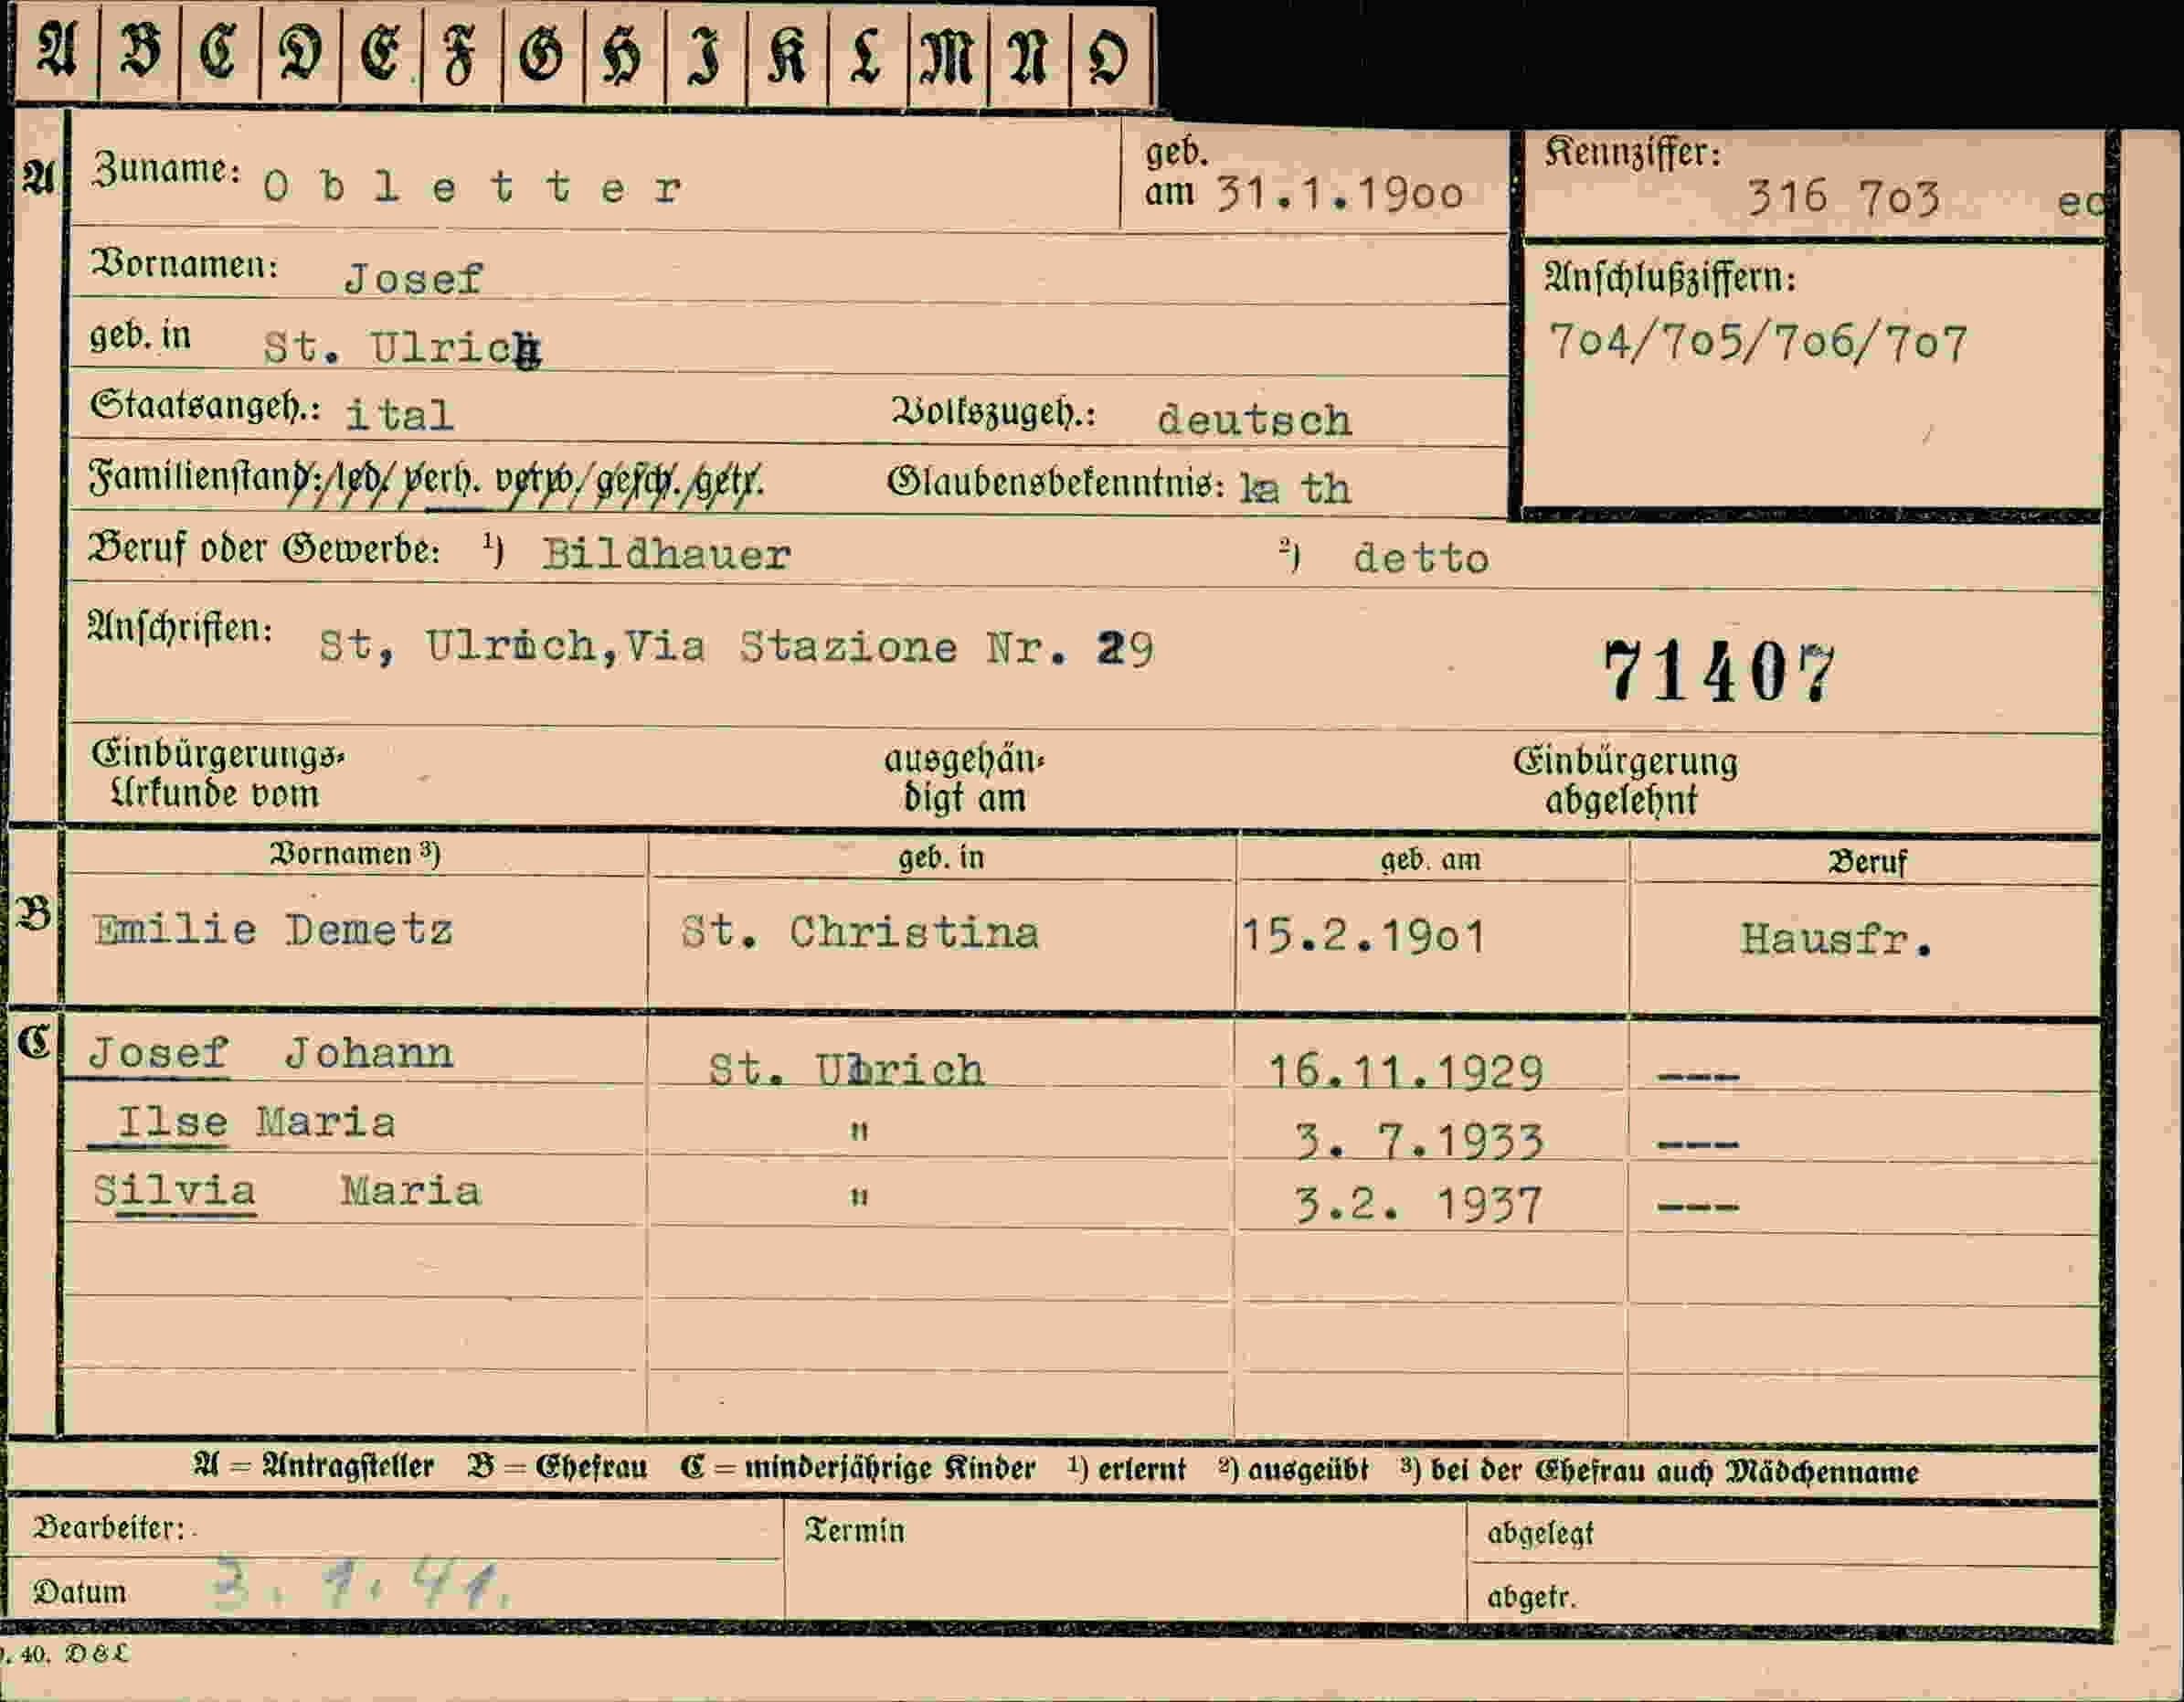 A B C D E F G H I K L M N O
A Zuname: Obletter geb. am 31.1.19oo Kennziffer: 316 7o3 ed
Vornamen: Josef Anschlußziffern:
geb. in St. Ulrich 7o4/7o5/7o6/7o7
Staatsangeh.: ital Volkszugeh.: deutsch
Familienstand: led. verh. verw. gesch. getr. Glaubensbekenntnis: ka th
Beruf oder Gewerbe: ¹) Bildhauer ²) detto
Anschriften: St, Ulrich,Via Stazione Nr. 29 71407
Einbürgerungs- ausgehän- Einbürgerung
Urkunde vom digt am abgelehnt
Vornamen ³) geb. in geb. am Beruf
B Emilie Demetz St. Christina 15.2.19o1 Hausfr.
C Josef Johann St. Ulrich 16.11.1929 ---
Ilse Maria " 3. 7.1933 ---
Silvia Maria " 3.2. 1937 ---
A = Antragsteller B = Ehefrau C = minderjährige Kinder ¹) erlernt ²) ausgeübt ³) bei der Ehefrau auch Mädchenname
Bearbeiter: Termin abgelegt
Datum 3.1.41. abgetr.
. 40. D & L